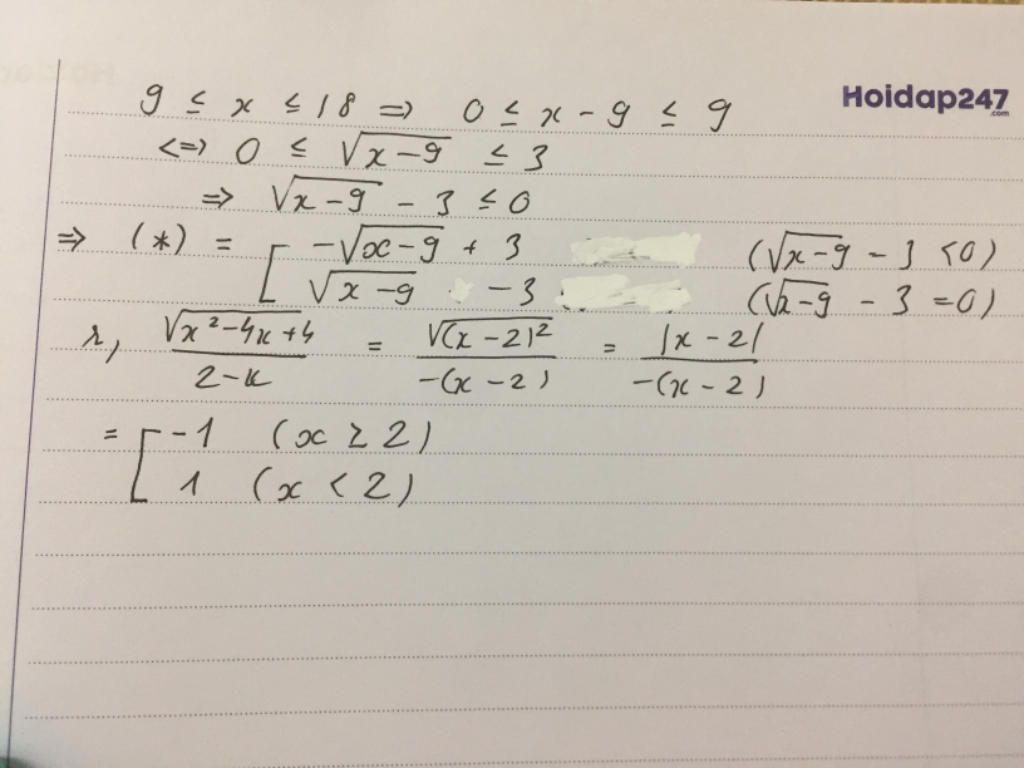 Hoidap247.com
9 ≤ x ≤ 18 => 0 ≤ x - 9 ≤ 9
<=> 0 ≤ √(x-9) ≤ 3
=> √(x-9) - 3 ≤ 0
=> (*) = [ -√(x-9) + 3 (√(x-9) - 3 < 0)
√(x-9) - 3 (√(x-9) - 3 = 0)
r, √(x²-4x+4) / (2-x) = √((x-2)²) / (-(x-2)) = |x-2| / (-(x-2))
= [ -1 (x ≥ 2)
1 (x < 2)